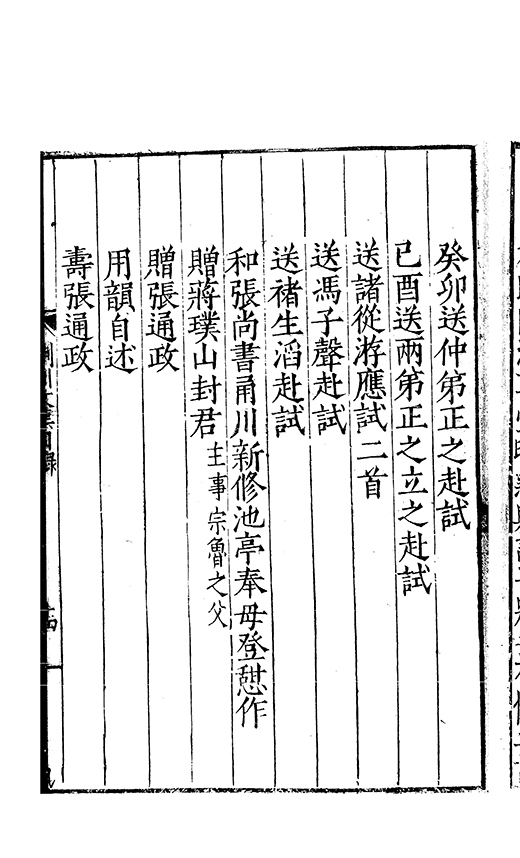 癸卯送仲弟正之赴試
己酉送兩弟正之立之赴試
送諸從游應試二首
送馮子聲赴試
送褚生滔赴試
和張尚書甬川新修池亭奉母登憇作
贈蔣璞山封君主事宗魯之父
贈張通政
用韻自述
壽張通政